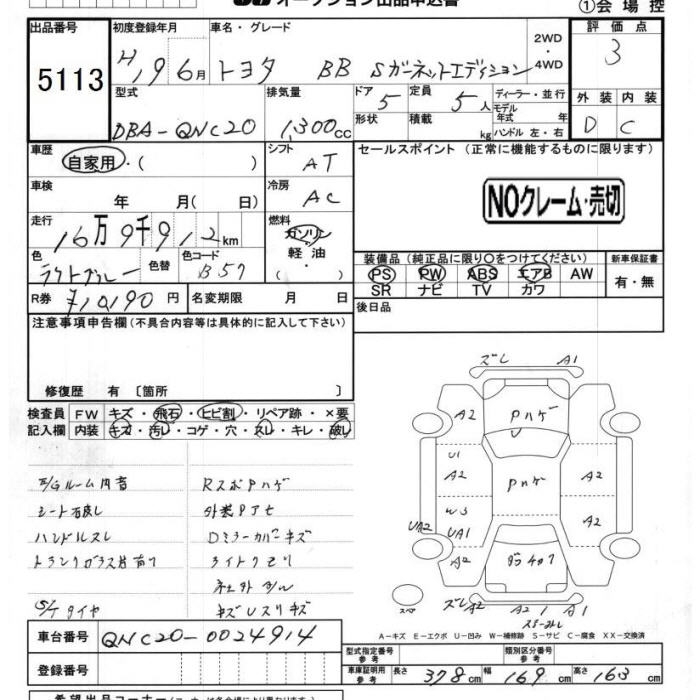 オークション出品申込書
①会場控
出品番号 5113
初度登録年月 H19 6月
車名・グレード トヨタ BB Sガーネットエディション
2WD・4WD
評価点 3
型式 DBA-QNC20
排気量 1,300cc
ドア 5
定員 5人
形状
積載 kg
ディーラー・並行
モデル年式 年
ハンドル 左・右
外装 D
内装 C
車歴 自家用・( )
シフト AT
セールスポイント (正常に機能するものに限ります)
車検 年 月( 日)
冷房 AC
NOクレーム・売切
走行 16万9千912km
燃料 ガソリン 軽油・( )
色 ライトグレー
色替
色コード B57
装備品 (純正品に限り○をつけてください)
PS PW ABS エアB AW
SR ナビ TV カワ
新車保証書 有・無
R券 ¥10,190円
名変期限 月 日
後日品
注意事項申告欄(不具合内容等は具体的に記入して下さい)
修復歴 有 〔箇所 〕
検査員記入欄
FW キズ・飛石・ヒビ割・リペア跡・×要
内装 キズ・汚レ・コゲ・穴・スレ・キレ・破レ
E/Gルーム内音 RスポPハゲ
シート破レ
ハンドルスレ Dミラーカバーキズ
S/Tタイヤ
車台番号 QNC20-0024914
登録番号
ズレ A1
A2 Pハゲ
U1 A2 Pハゲ A2
W3
UA2 UA1 A2
A2
ズレ A2 A2 1 A1
A-キズ E-エクボ U-凹み W-補修跡 S-サビ C-腐食 XX-交換済
型式指定番号 参考
類別区分番号 参考
車庫証明用 参考 長さ 378cm 幅 169cm 高さ 163cm
希望出品コーナー